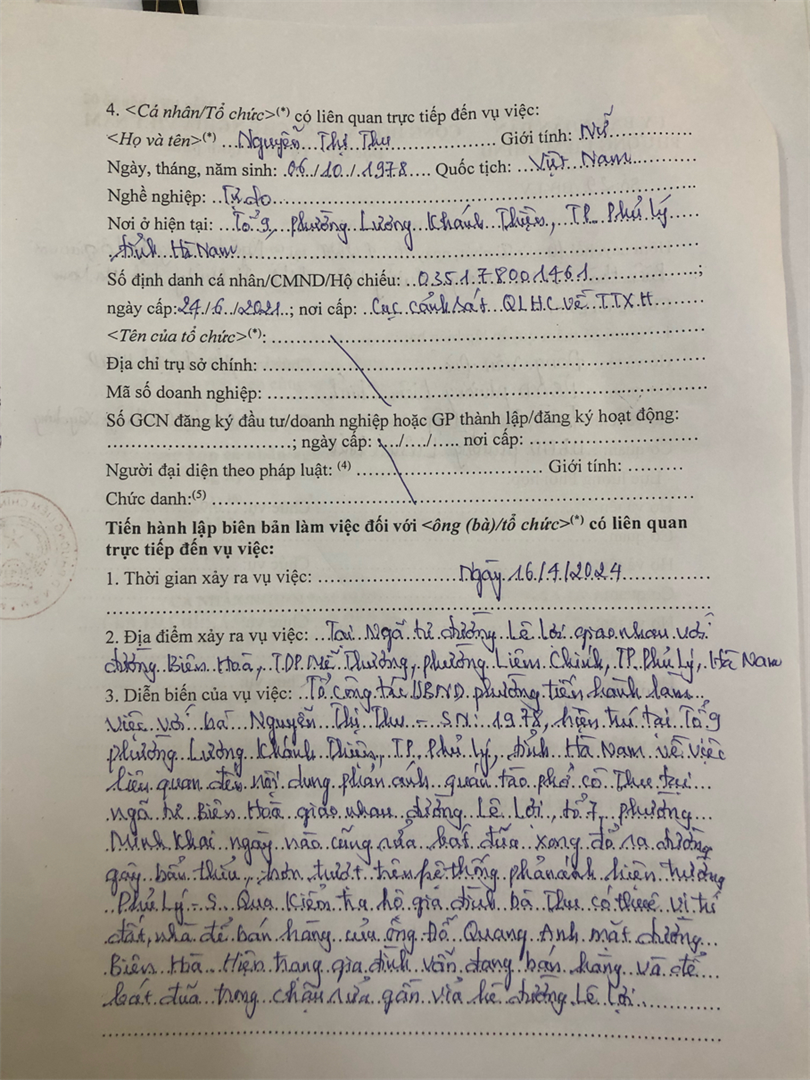 4. <Cá nhân/Tổ chức>(*) có liên quan trực tiếp đến vụ việc:
<Họ và tên>(*) ...Nguyễn Thị Thu............ Giới tính: Nữ............
Ngày, tháng, năm sinh: 06../10../.1978.... Quốc tịch: ...Việt Nam............
Nghề nghiệp: ..Tự do............
Nơi ở hiện tại: ..Tổ 9, phường Lương Khánh Thiện, TP Phủ Lý......
tỉnh Hà Nam............
Số định danh cá nhân/CMND/Hộ chiếu: ..035178001461............;
ngày cấp:24./6../2021..; nơi cấp: ..Cục cảnh sát QLHC về TTXH............
<Tên của tổ chức>(*): ............
Địa chỉ trụ sở chính: ............
Mã số doanh nghiệp: ............
Số GCN đăng ký đầu tư/doanh nghiệp hoặc GP thành lập/đăng ký hoạt động:
............; ngày cấp: ..../..../..... nơi cấp: ............
Người đại diện theo pháp luật: (4) ............ Giới tính: .........
Chức danh:(5) ............
Tiến hành lập biên bản làm việc đối với <ông (bà)/tổ chức>(*) có liên quan
trực tiếp đến vụ việc:
1. Thời gian xảy ra vụ việc: ............Ngày 16/4/2024............
2. Địa điểm xảy ra vụ việc: ..Tại Ngã tư đường Lê Lợi giao nhau với
đường Biên Hoà, TDP Mễ Thượng, phường Liêm Chính, TP Phủ Lý, Hà Nam
3. Diễn biến của vụ việc: ..Tổ công tác UBND phường tiến hành làm
việc với bà Nguyễn Thị Thu - SN: 1978, hiện trú tại Tổ 9
phường Lương Khánh Thiện, TP Phủ Lý, tỉnh Hà Nam về việc
liên quan đến nội dung phản ánh quán tào phở cô Thu tại
ngã tư Biên Hoà giao nhau đường Lê Lợi, tổ 7, phường
Minh Khai ngày nào cũng rửa bát đũa xong đổ ra đường
gây bẩn thỉu, trơn trượt trên hệ thống phản ánh hiện trường
Phủ Lý - S. Qua kiểm tra hộ gia đình bà Thu có thuê vị trí
đất, nhà để bán hàng của ông Đỗ Quang Anh mặt đường
Biên Hoà. Hiện trạng gia đình vẫn đang bán hàng và để
bát đũa trong chậu rửa gần vỉa hè đường Lê Lợi